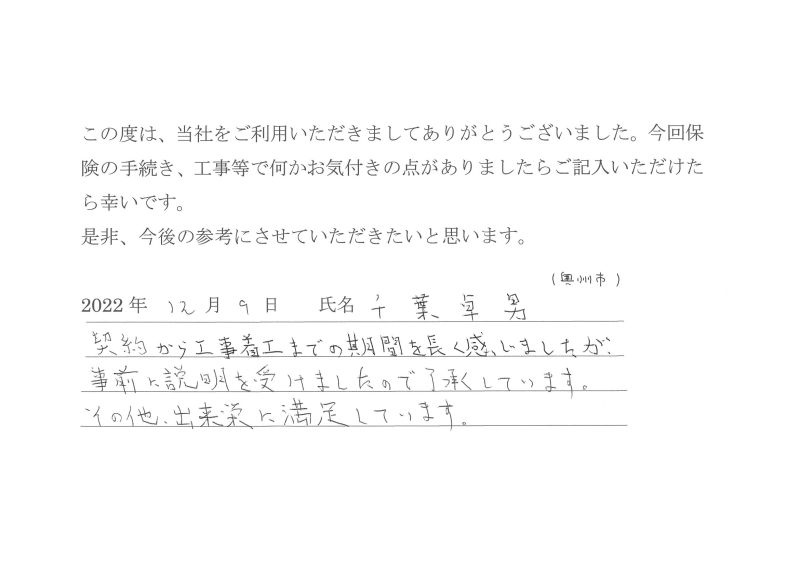 この度は、当社をご利用いただきましてありがとうございました。今回保
険の手続き、工事等で何かお気付きの点がありましたらご記入いただけた
ら幸いです。
是非、今後の参考にさせていただきたいと思います。
(奥州市)
2022年 12月 9日 氏名 千葉卓男
契約から工事着工までの期間を長く感じましたが、
事前に説明を受けましたので了承しています。
その他、出来栄に満足しています。